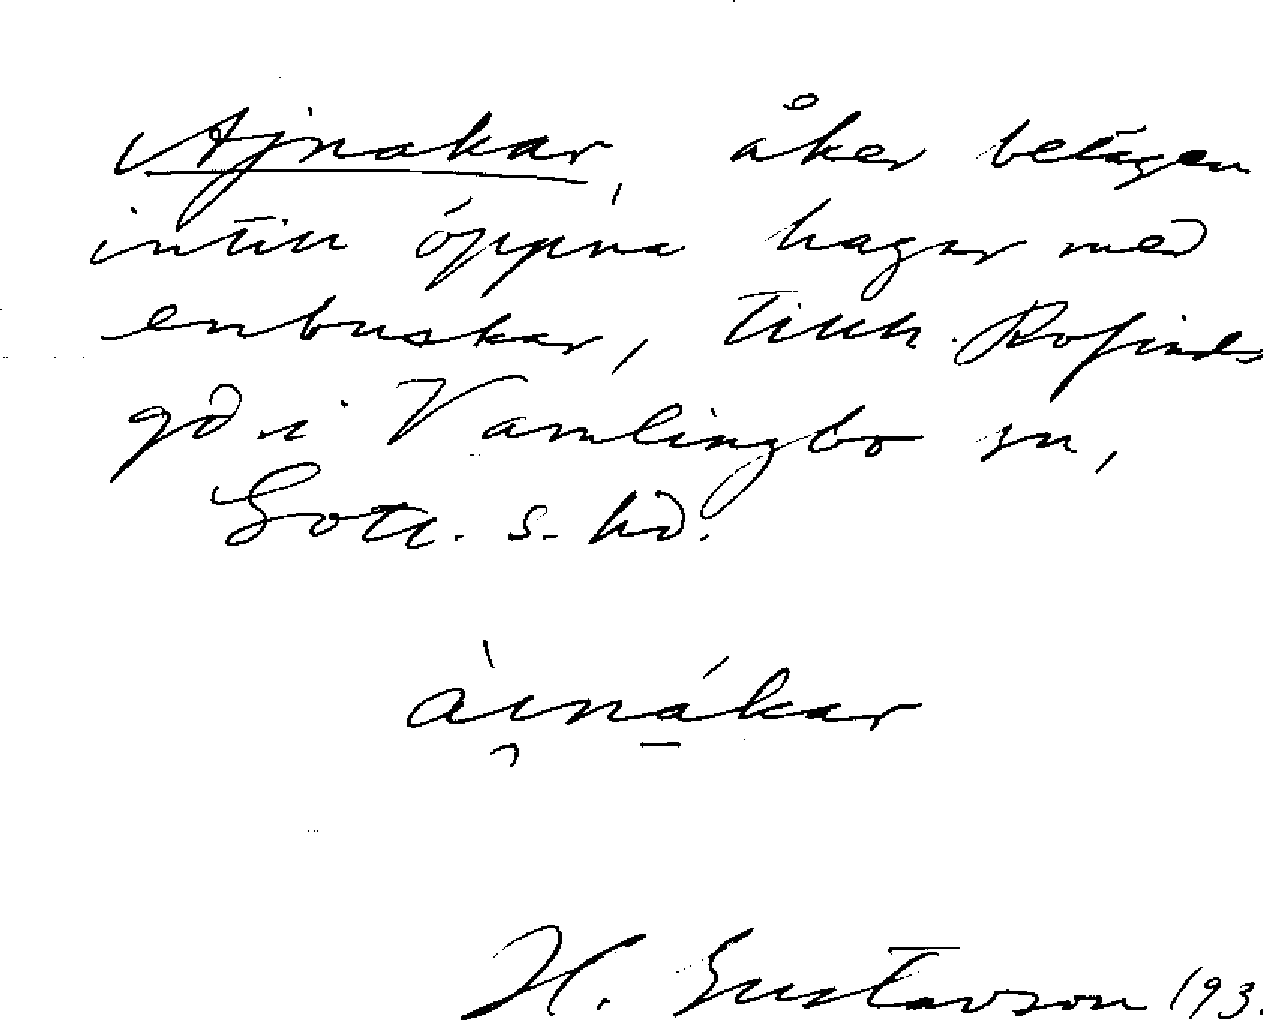 Ajnakar, åker belägen
intill öppna hagar med
enbuskar, tillh. Rofinds
gd i Vamlingbo sn,
Gotl. s. hd.
àinákar
H. Gustavson 193.